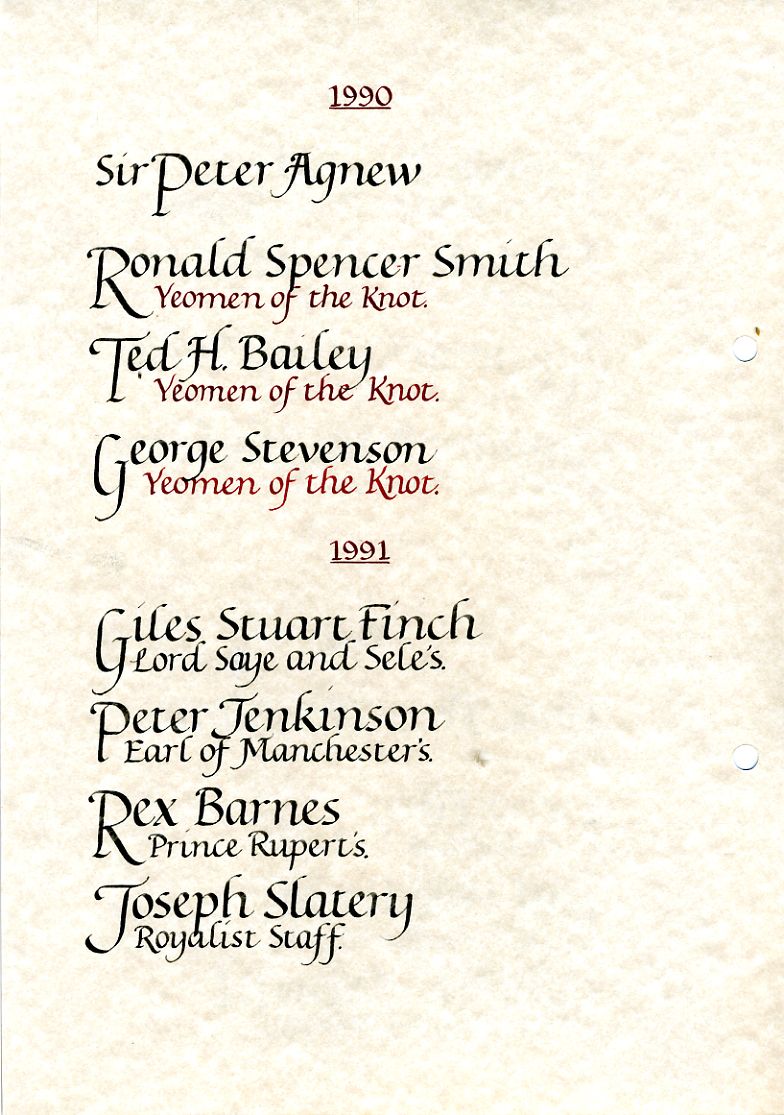 1990
Sir Peter Agnew
Ronald Spencer Smith
Yeomen of the Knot.
Ted H. Bailey
Yeomen of the Knot.
George Stevenson
Yeomen of the Knot.
1991
Giles Stuart Finch
Lord Saye and Sele's.
Peter Jenkinson
Earl of Manchester's.
Rex Barnes
Prince Rupert's.
Joseph Slatery
Royalist Staff.